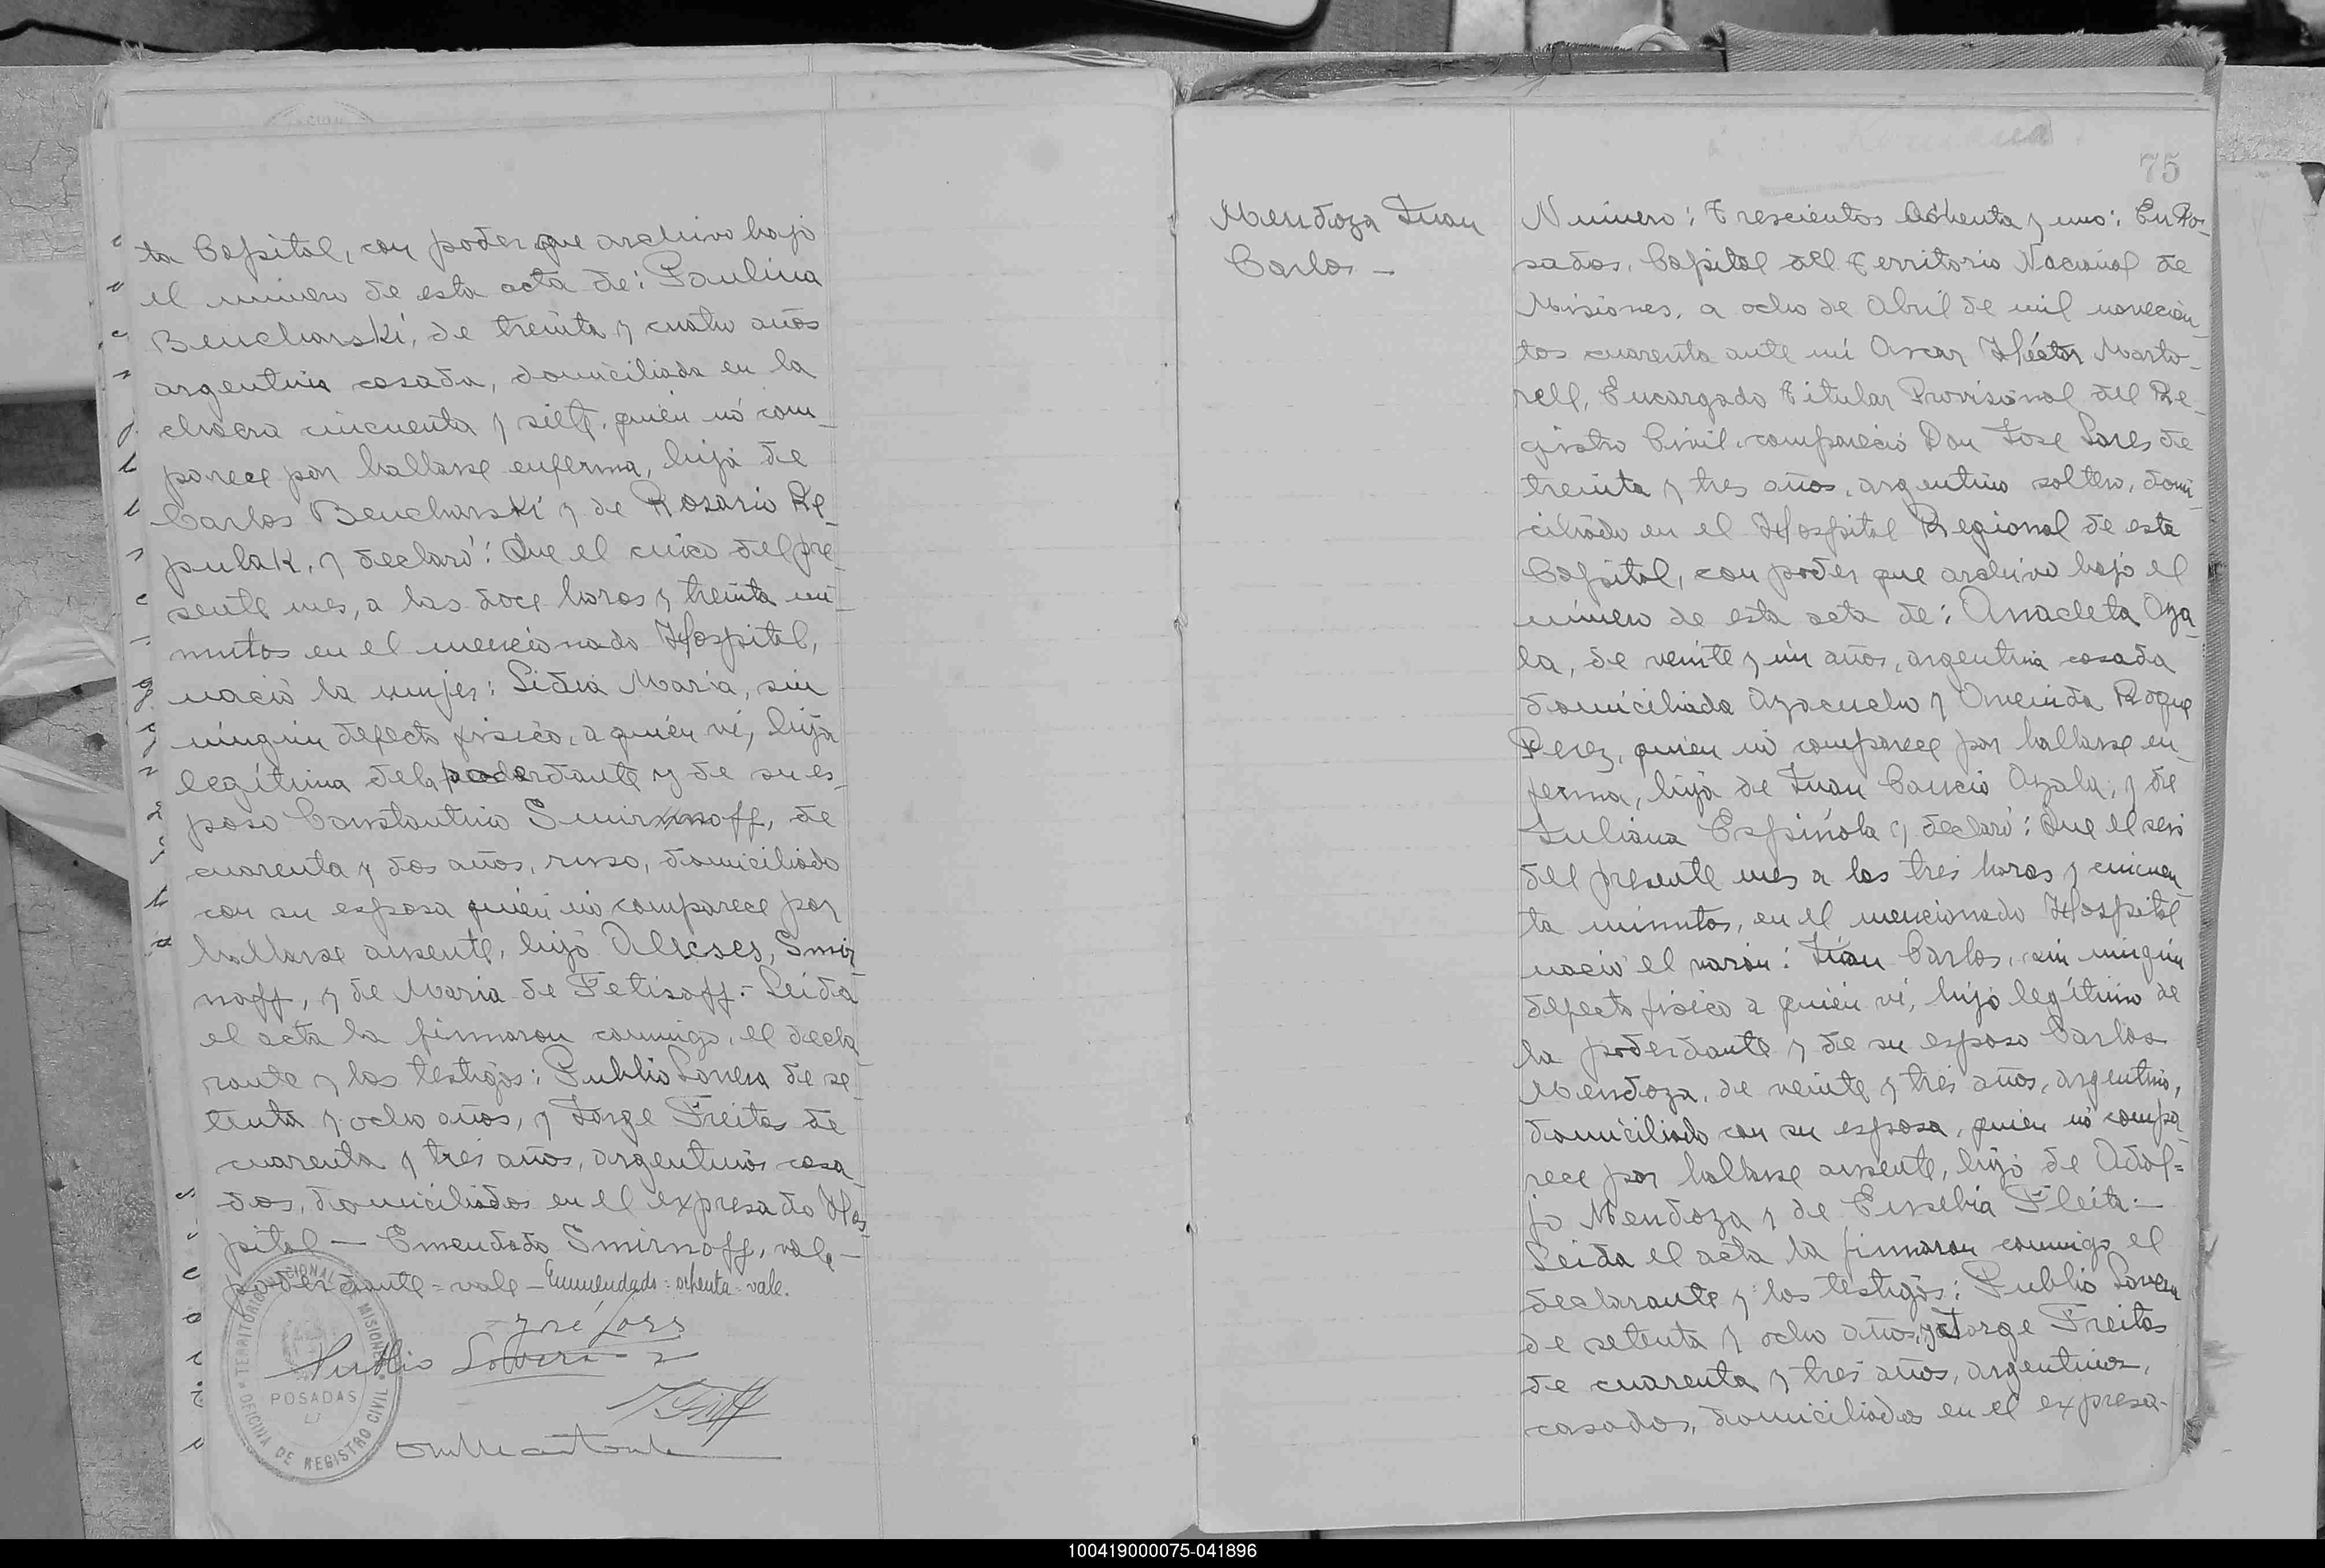 ta Capital, con poder que archivo bajo
el número de esta acta de: Paulina
Bencharski, de treinta y cuatro años
argentina casada, domiciliada en la
chacra cincuenta y siete, quién nó com_
parece por hallarse enferma, hija de
Carlos Bencharski y de Rosario Re_
pulak, y declaró: Que el cinco del pre_
sente mes, a las doce horas y treinta mi_
nutos en el mencionado Hospital,
nació la mujer: Lidia Maria, sin
ningún defecto fisico, a quién ví, hija
legítima de la poderdante y de su es_
poso Constantino Smirnoff, de
cuarenta y dos años, ruso, domiciliado
con su esposa quién nó comparece por
hallarse ausente, hijo Alicses, Smir_
noff, y de Maria de Fetisoff.- Leida
el acta la firmaron conmigo, el decla_
rante y los testigos: Publio Lovera de se_
tenta y ocho años, y Jorge Freitas de
cuarenta y tres años, argentinos casa_
dos, domiciliados en el expresado Hos_
pital — Emendado Smirnoff, vale —
poderdante = vale — Enmendado: ochenta = vale.
José Lares
Publio Lovera
TERRITORIO NACIONAL DE MISIONES
POSADAS
OFICINA DE REGISTRO CIVIL
75
Mendoza Juan
Carlos —
Número: Trescientos ochenta y uno: En Po_
sadas, Capital del Territorio Nacional de
Misiones, a ocho de Abril de mil novecien_
tos cuarenta ante mí Oscar Héctor Marto_
rell, Encargado Titular Provisional del Re_
gistro Civil, compareció Don Jose Lares de
treinta y tres años, argentino soltero, domi_
ciliado en el Hospital Regional de esta
Capital, con poder que archivo bajo el
número de esta acta de: Anacleta Aya_
la, de veinte y un años, argentina casada
domiciliada Ayacucho y Avenida Roque
Perez, quién nó comparece por hallarse en_
ferma, hija de Juan Cancio Ayala, y de
Juliana Espínola y declaró: Que el seis
del presente mes a las tres horas y cincuen_
ta minutos, en el mencionado Hospital
nació el varón: Juan Carlos, sin ningún
defecto fisico a quién ví, hijo legítimo de
la poderdante y de su esposo Carlos
Mendoza, de veinte y tres años, argentino,
domiciliado con su esposa, quién nó compa_
rece por hallarse ausente, hijo de Adol=
fo Mendoza y de Eusebia Fleita.—
Leida el acta la firmaron conmigo el
declarante y los testigos: Publio Lovera
de setenta y ocho años, y Jorge Freitas
de cuarenta y tres años, argentinos,
casados, domiciliados en el expresa-
100419000075-041896